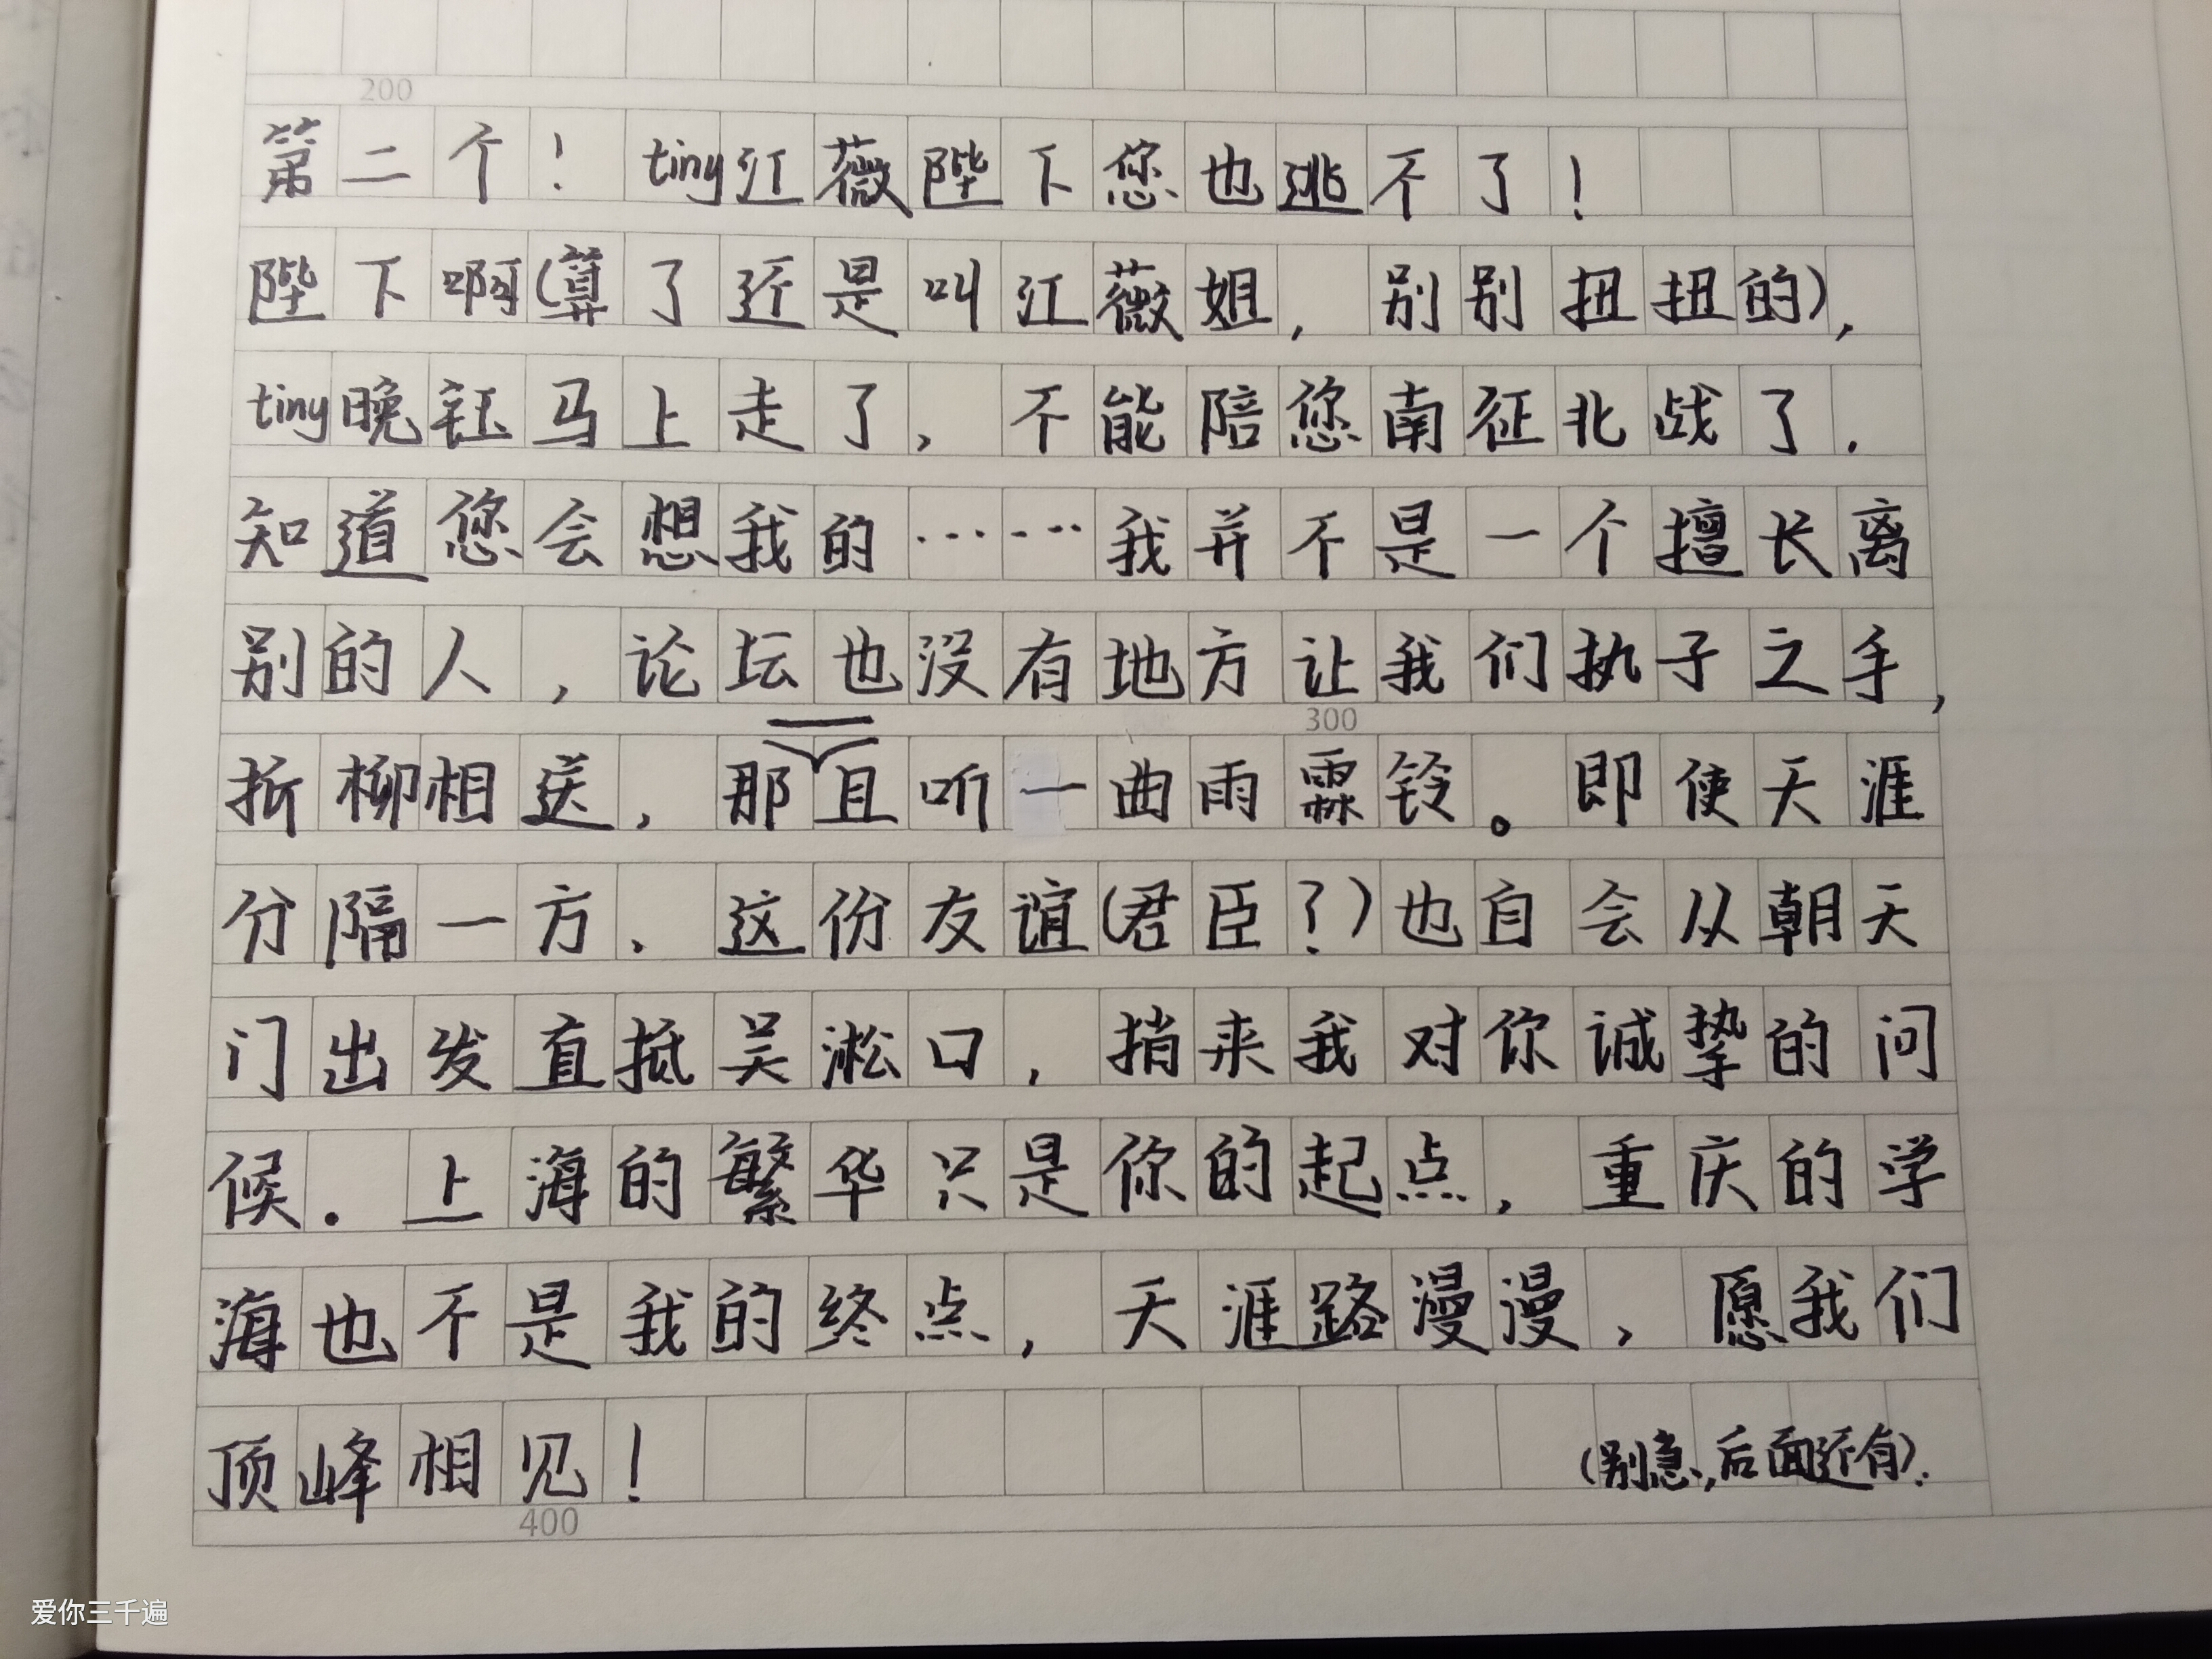 200
第二个！tiny江薇陛下您也逃不了！
陛下啊(算了还是叫江薇姐，别别扭扭的)，
tiny晚钰马上走了，不能陪您南征北战了．
知道您会想我的……我并不是一个擅长离
别的人，论坛也没有地方让我们执子之手，
300
折柳相送，那且听一曲雨霖铃。即使天涯
分隔一方、这份友谊(君臣？)也自会从朝天
门出发直抵吴淞口，捎来我对你诚挚的问
候．上海的繁华只是你的起点，重庆的学
海也不是我的终点，天涯路漫漫，愿我们
顶峰相见！
(别急，后面还有)．
400
爱你三千遍